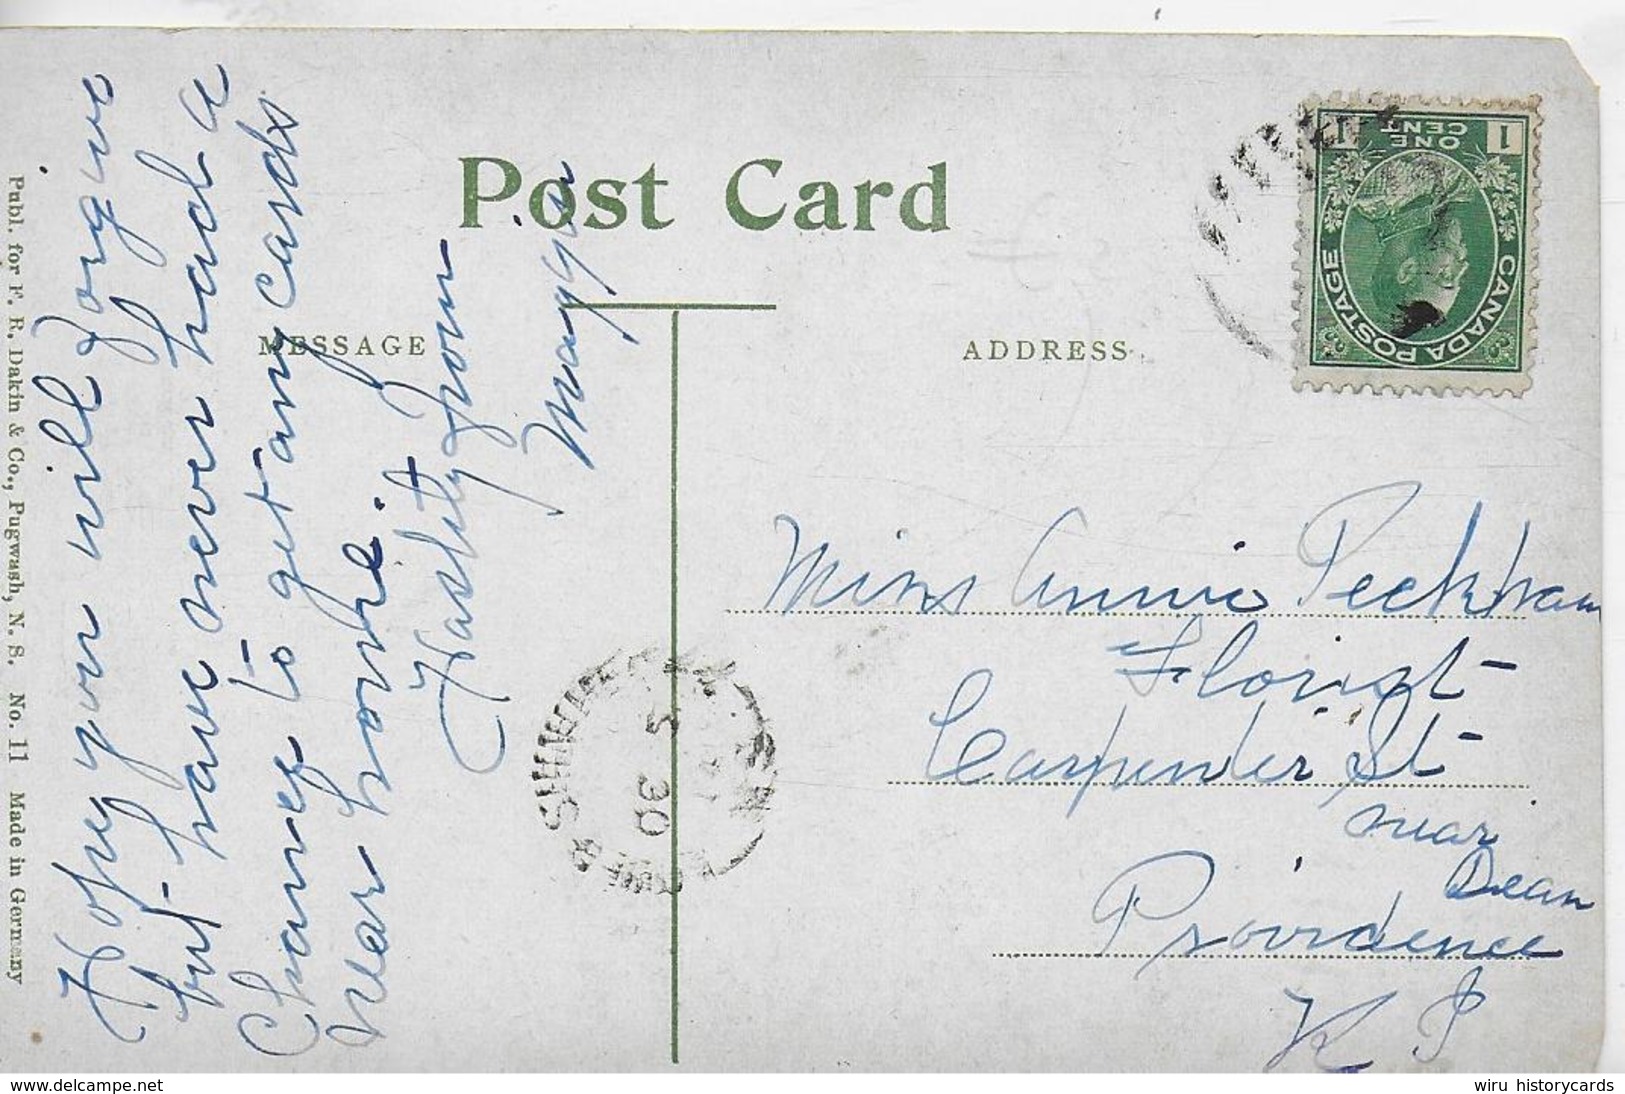 Post Card
MESSAGE
ADDRESS
Hope you will forgive
but have never had a
Chance to get any cards
near home.
Hastily from
Miss Annie Peckham
Florist
Carpenter St
near
Dean
Providence
R I
CANADA POSTAGE
ONE
CENT
1 1
5
30
Publ. for F. R. Dakin & Co., Pugwash, N. S. No. 11 Made in Germany
www.delcampe.net
wiru historycards